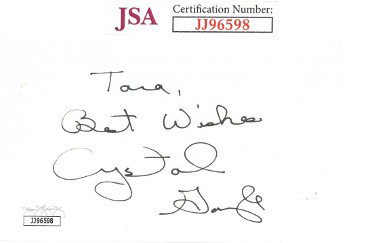 JSA Certification Number:
JJ96598
Tara,
Best Wishes
Crystal
Gayle
JJ96598